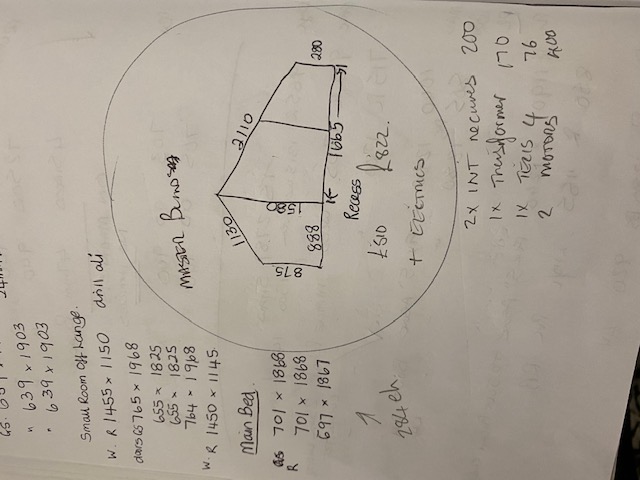 24mm
" 639 x 1903
" 639 x 1903
Small Room Off Lounge.
W. R 1455 x 1150 drill all
doors GS 765 x 1968
655 x 1825
655 x 1825
764 x 1968
W. R 1450 x 1145
Main Bed.
GS 701 x 1868
R 701 x 1868
697 x 1867
↑
284 eh
MASTER
1130
2110
280
875
888
1580
1665
Recess
£510
£822.
+ ELECTRICS
2x INT RECIVERS 200
1x Transformer 170
1x TELIS 4 76
2 MOTORS 400